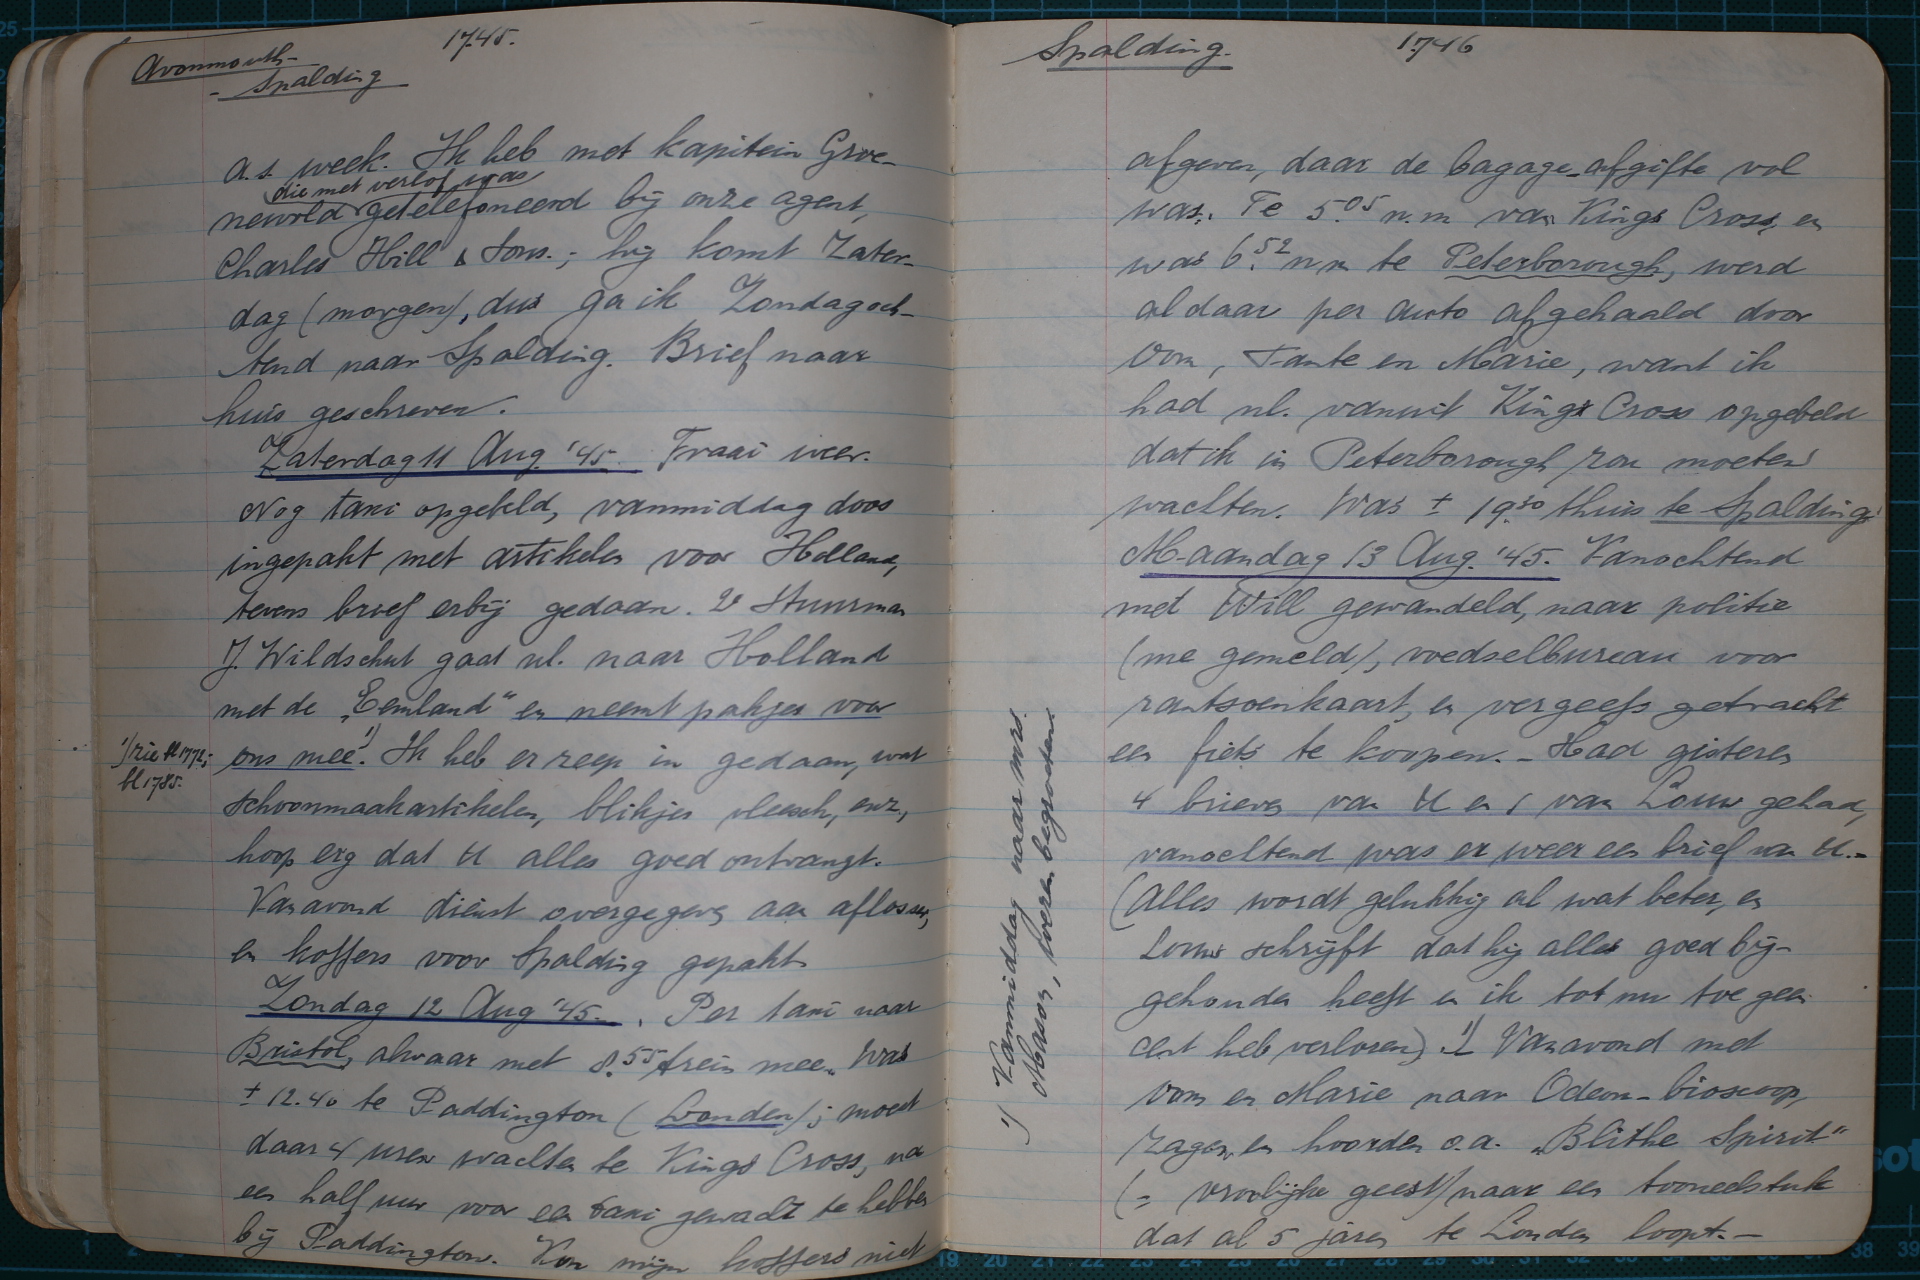 Avonmouth-
- Spalding
1745.
a.s. week. Ik heb met kapitein Groe-
die met verlof was
neveld getelefoneerd bij onze agent,
Charles Hill & Sons.; hij komt Zater-
dag (morgen), dus ga ik Zondagoch-
tend naar Spalding. Brief naar
huis geschreven.
Zaterdag 11 Aug. '45. Fraai weer.
Nog taxi opgebeld, vanmiddag doos
ingepakt met artikelen voor Holland,
tevens brief erbij gedaan. 2e Stuurman
J. Wildschut gaat nl. naar Holland
met de "Eemland" en neemt pakjes voor
1) zie bl 1772;
bl 1785.
ons mee 1). Ik heb er zeep in gedaan, wat
schoonmaakartikelen, blikjes vleesch, enz,
hoop erg dat U alles goed ontvangt.
Vanavond dienst overgegeven aan aflosser,
en koffers voor Spalding gepakt.
Zondag 12 Aug '45. Per taxi naar
Bristol, alwaar met 8.55 trein mee. Was
± 12.40 te Paddington (Londen); moest
daar 4 uren wachten te Kings Cross, na
een half uur voor een taxi gewacht te hebben
bij Paddington. Kon mijn koffers niet
Spalding.
1746
afgeven, daar de bagage-afgifte vol
was. Te 5.05 n.m van Kings Cross, en
was 6.52 nm te Peterborough, werd
aldaar per auto afgehaald door
Oom, Tante en Marie, want ik
had nl. vanuit Kings Cross opgebeld
dat ik in Peterborough zou moeten
wachten. Was ± 19.30 thuis te Spalding.
Maandag 13 Aug. '45. Vanochtend
met Will gewandeld, naar politie
(me gemeld), voedselbureau voor
rantsoenkaart, en vergeefs getracht
een fiets te koopen. - Had gisteren
4 brieven van U en 1 van Louw gehad,
vanochtend was er weer een brief van U. -
(Alles wordt gelukkig al wat beter, en
Louw schrijft dat hij alles goed bij-
gehouden heeft en ik tot nu toe geen
cent heb verloren) 1) Vanavond met
oom en Marie naar Odeon-bioscoop,
zagen en hoorden o.a. "Blithe Spirit"
(= vroolijke geest) naar een tooneelstuk
dat al 5 jaren te Londen loopt. -
1) Vanmiddag naar mrs.
Mason, weren begroeten